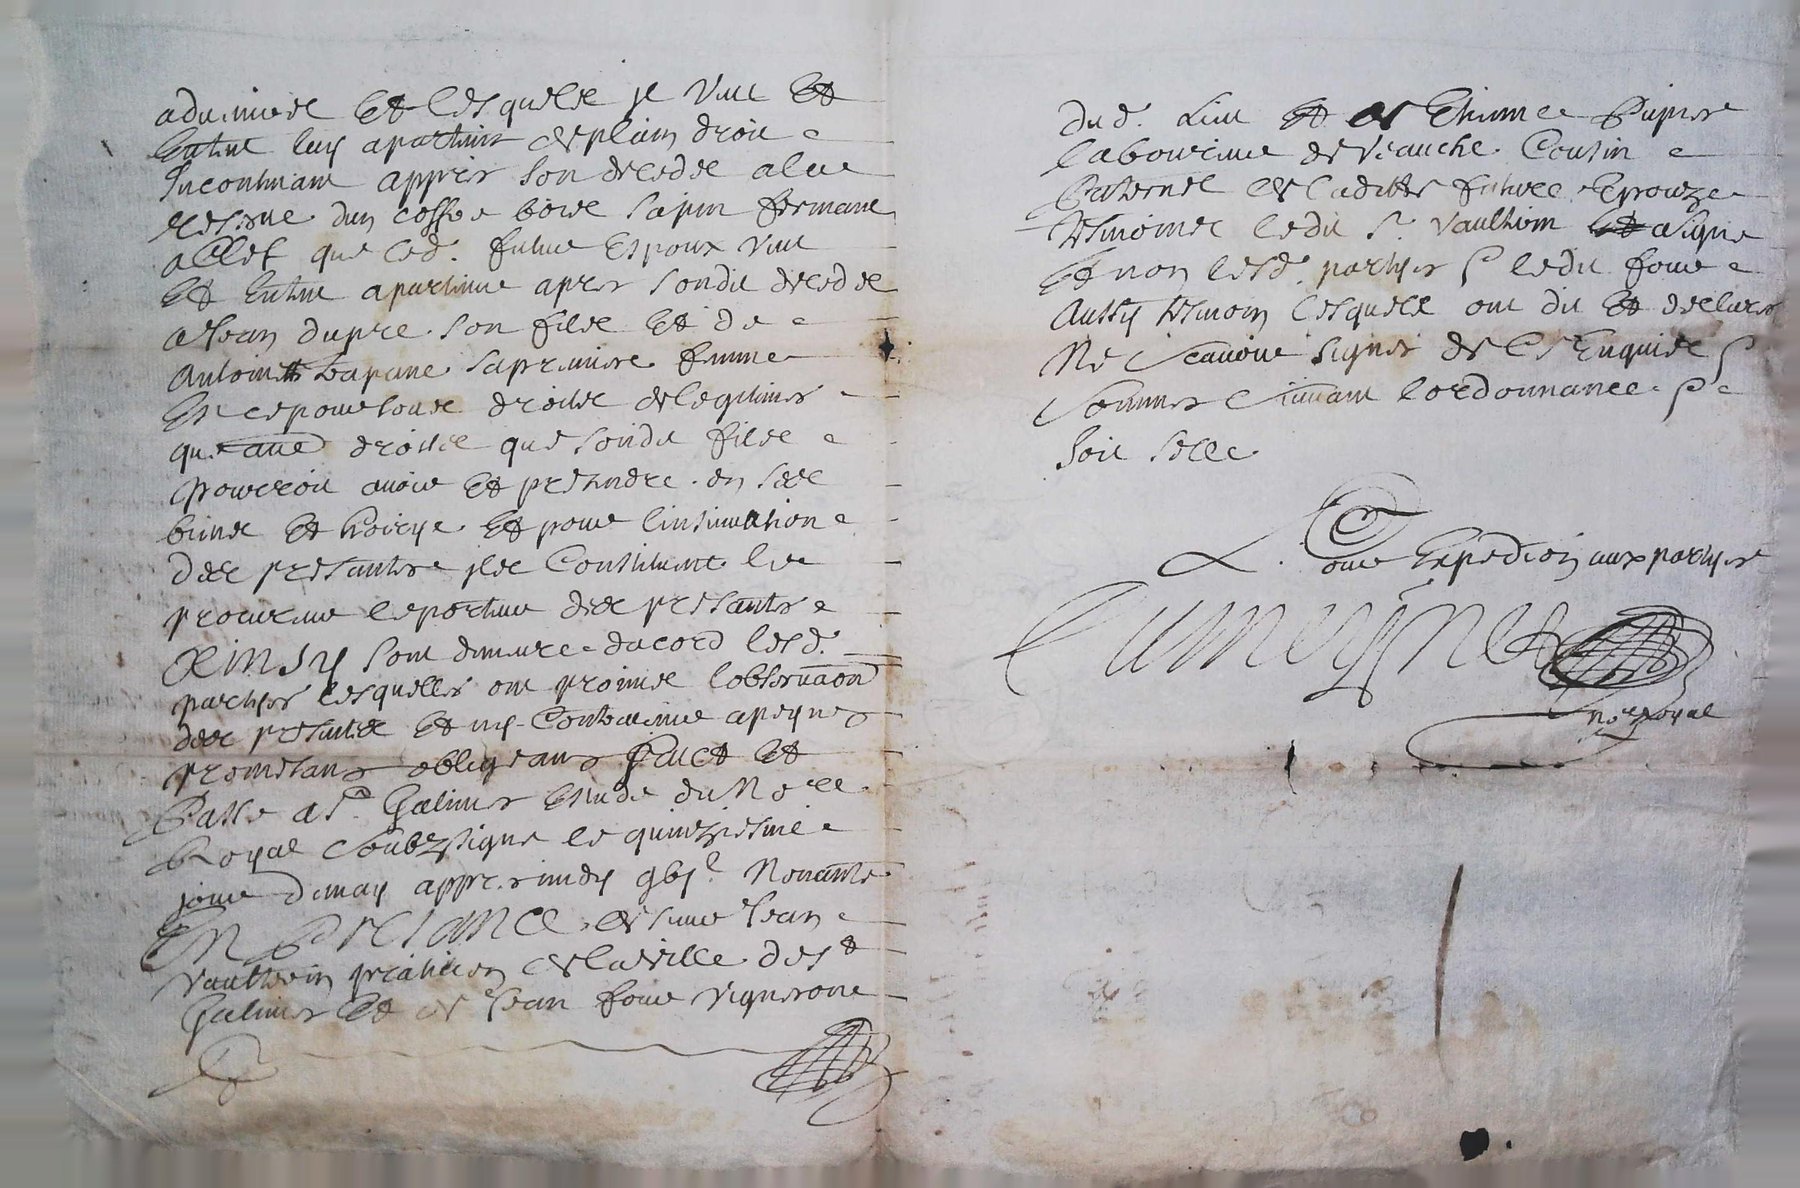 et lesquels il veut et
Entend luy apartenir de plain droit
Incontinant appres son deceds a la
reserve dun coffre bois sapin fermant
a clef que led. futur Espoux veut
Et Entend apartenir apres sondit deceds
a Jean dupre son fils Et de
Antoinette sa premiere femme
Et ce pour tous droits de legitimes
que autres droits que sondit fils
pourroit avoir Et pretendre en ses
biens Et hoirye Et pour linsinuation
des presantes ils Constituent le
procureur le porteur des presantes
Ainsy sont demeures dacord lesd.
partyes lesquelles ont promis lobservaon
des presantes Et ny Contrevenir a peyne
prometans obligeans Faict Et
Passe a St. Galmier Estude du No.re
Royal Soubzsigne le quinziesme
jour de may appres midy Novante
En Presance de sieur Jean
Vaulthoin praticien de la ville de St
Galmier Et de Jean four vigneron
dud. Lieu Et de Ethienne Papier
laboureur de Veauche Cousin
Paternel de laditte future Epouze
tesmoins ledit Sr. Vaulthoin a signe
Et non lesd. partyes ledit four
Aussy tesmoin lesquels ont dit Et declare
Ne Scavoir signer de ce Enquis
Sommes Suivant lordonnance
Soit selle
Pour Expedion aux partyes
no.re Royal